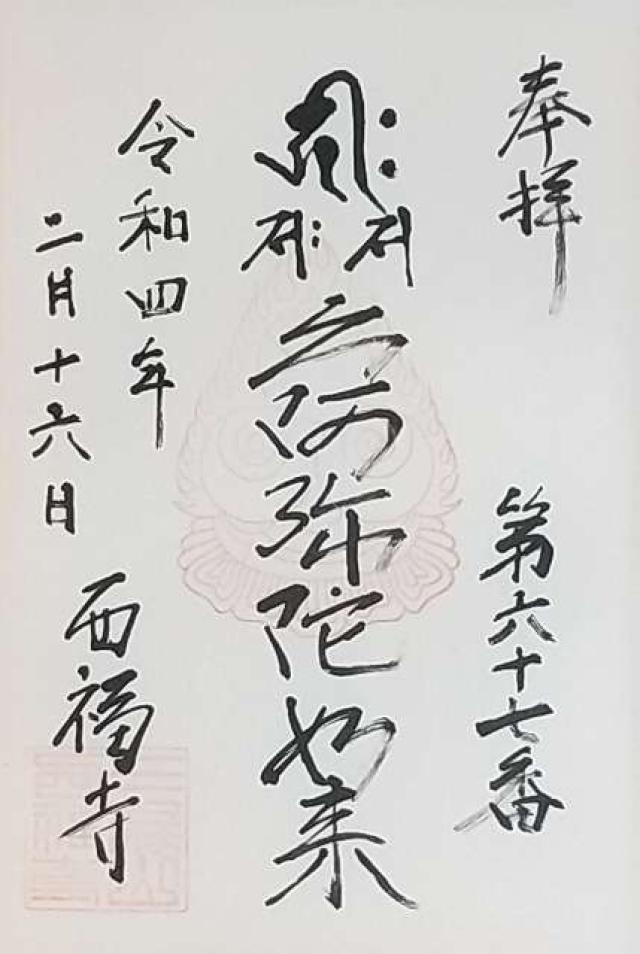 奉拝
第六十七番
𑖮𑖿𑖨𑖱𑖾
𑖭 𑖭𑖾
阿弥陀如来
令和四年
二月十六日
西福寺